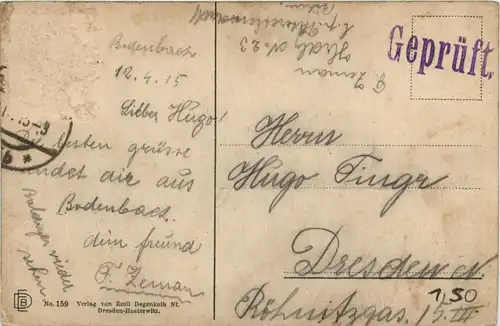 Bodenbach
12.4.15
Lieber Hugo!
Die besten grüsse
sendet dir aus
Bodenbach.
dein freund
F. Zeman
wieder
sehen
No. 159 Verlag von Emil Degenkolb Nf.
Dresden-Hosterwitz.
Geprüft
Zeman
No. 23
Herrn
Hugo Fingr
Dresden N.
Röhnitzgas. 15 III
1,50